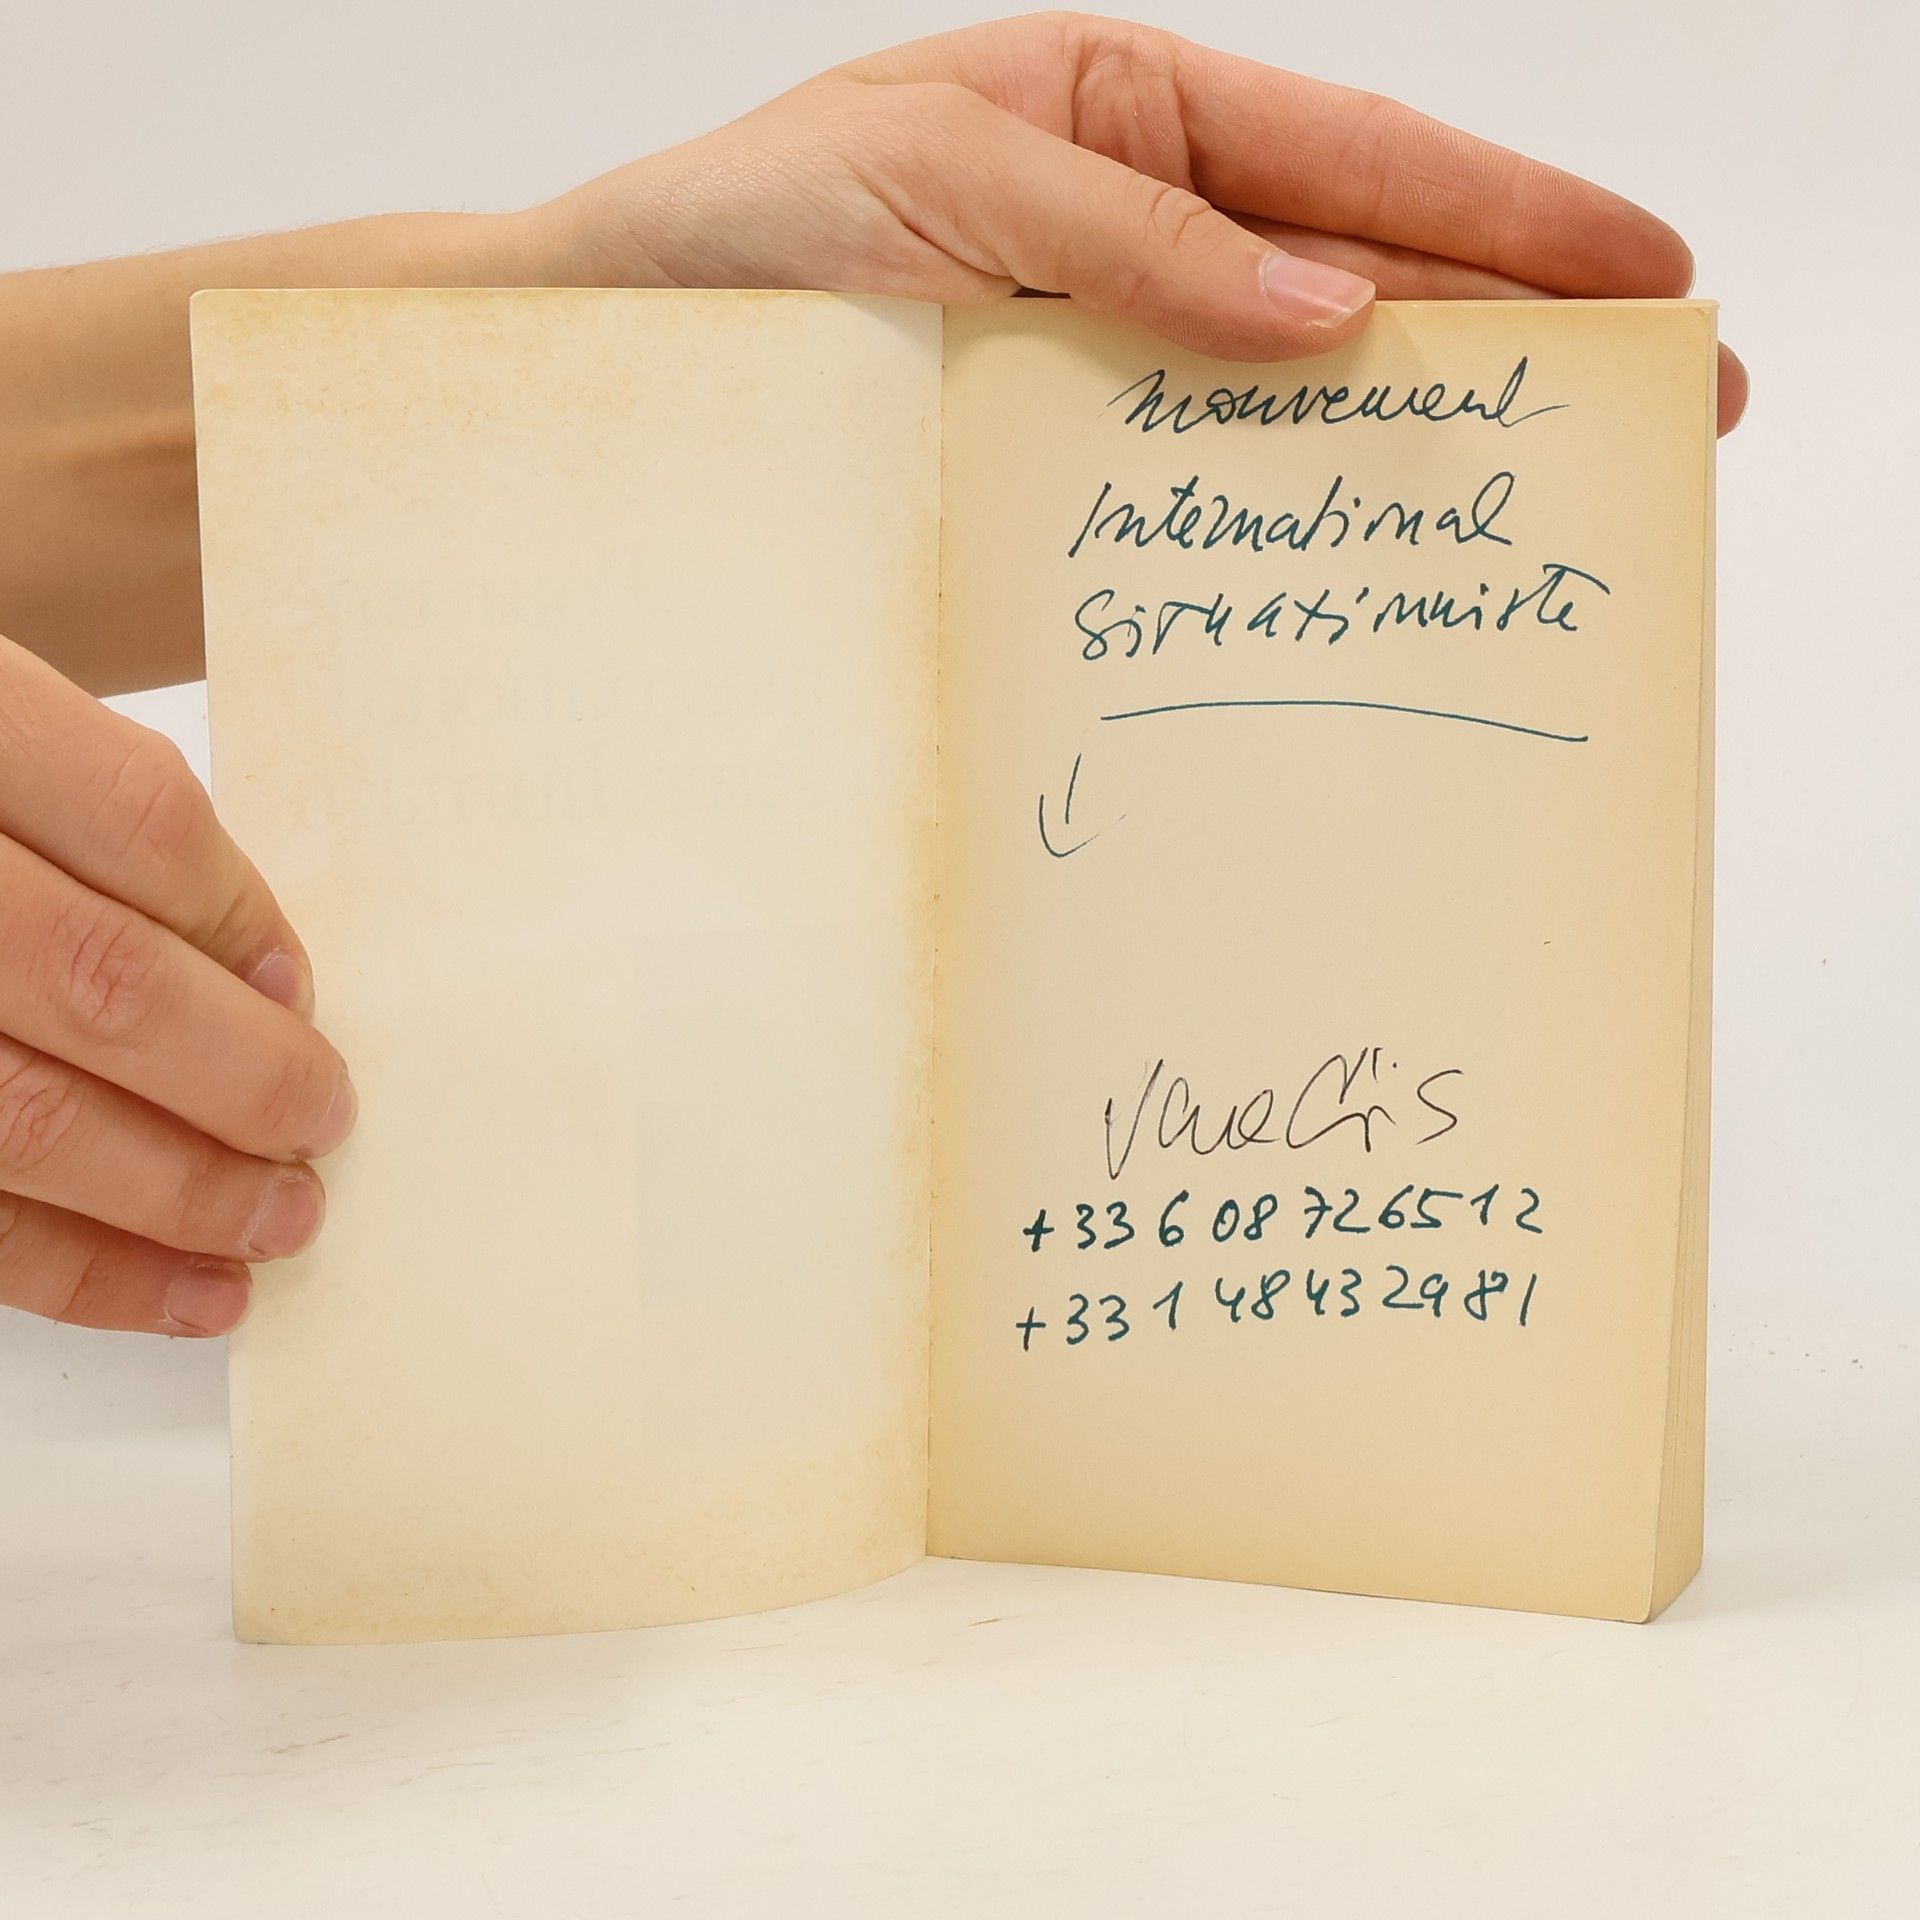 mouvement
International
Situationniste
+33 6 08 726512
+33 1 48 43 29 81